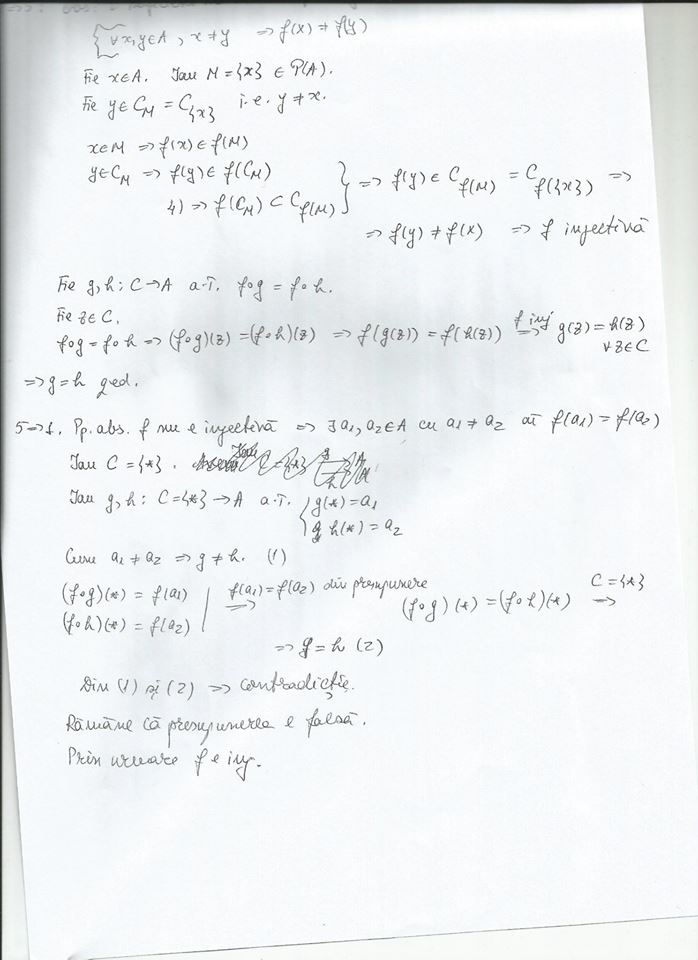 {∀x,y∈A, x≠y ⇒ f(x) ≠ f(y)
Fie x∈A. Iau M = {x} ∈ P(A).
Fie y∈C_M = C_{x} i.e. y≠x.
x∈M ⇒ f(x) ∈ f(M)
y∈C_M ⇒ f(y) ∈ f(C_M)
4) ⇒ f(C_M) ⊂ C_f(M) } ⇒ f(y) ∈ C_f(M) = C_f({x}) ⇒
⇒ f(y) ≠ f(x) ⇒ f injectivă
Fie g,h : C→A a.î. f∘g = f∘h.
Fie z∈C,
f∘g = f∘h ⇒ (f∘g)(z) = (f∘h)(z) ⇒ f(g(z)) = f(h(z)) f inj ⇒ g(z) = h(z)
∀z∈C
⇒ g=h qed.
5⇒1. Pp. abs. f nu e injectivă ⇒ ∃ a1, a2∈A cu a1≠a2 aî f(a1) = f(a2)
Iau C = {*}.
Iau g, h : C={*} → A a.î. { g(*) = a1
h(*) = a2
Cum a1≠a2 ⇒ g≠h. (1)
(f∘g)(*) = f(a1)
(f∘h)(*) = f(a2) | f(a1)=f(a2) din presupunere ⇒ (f∘g)(*) = (f∘h)(*) C={*} ⇒
⇒ g=h (2)
Din (1) și (2) ⇒ contradicție.
Rămâne că presupunerea e falsă.
Prin urmare f e inj.